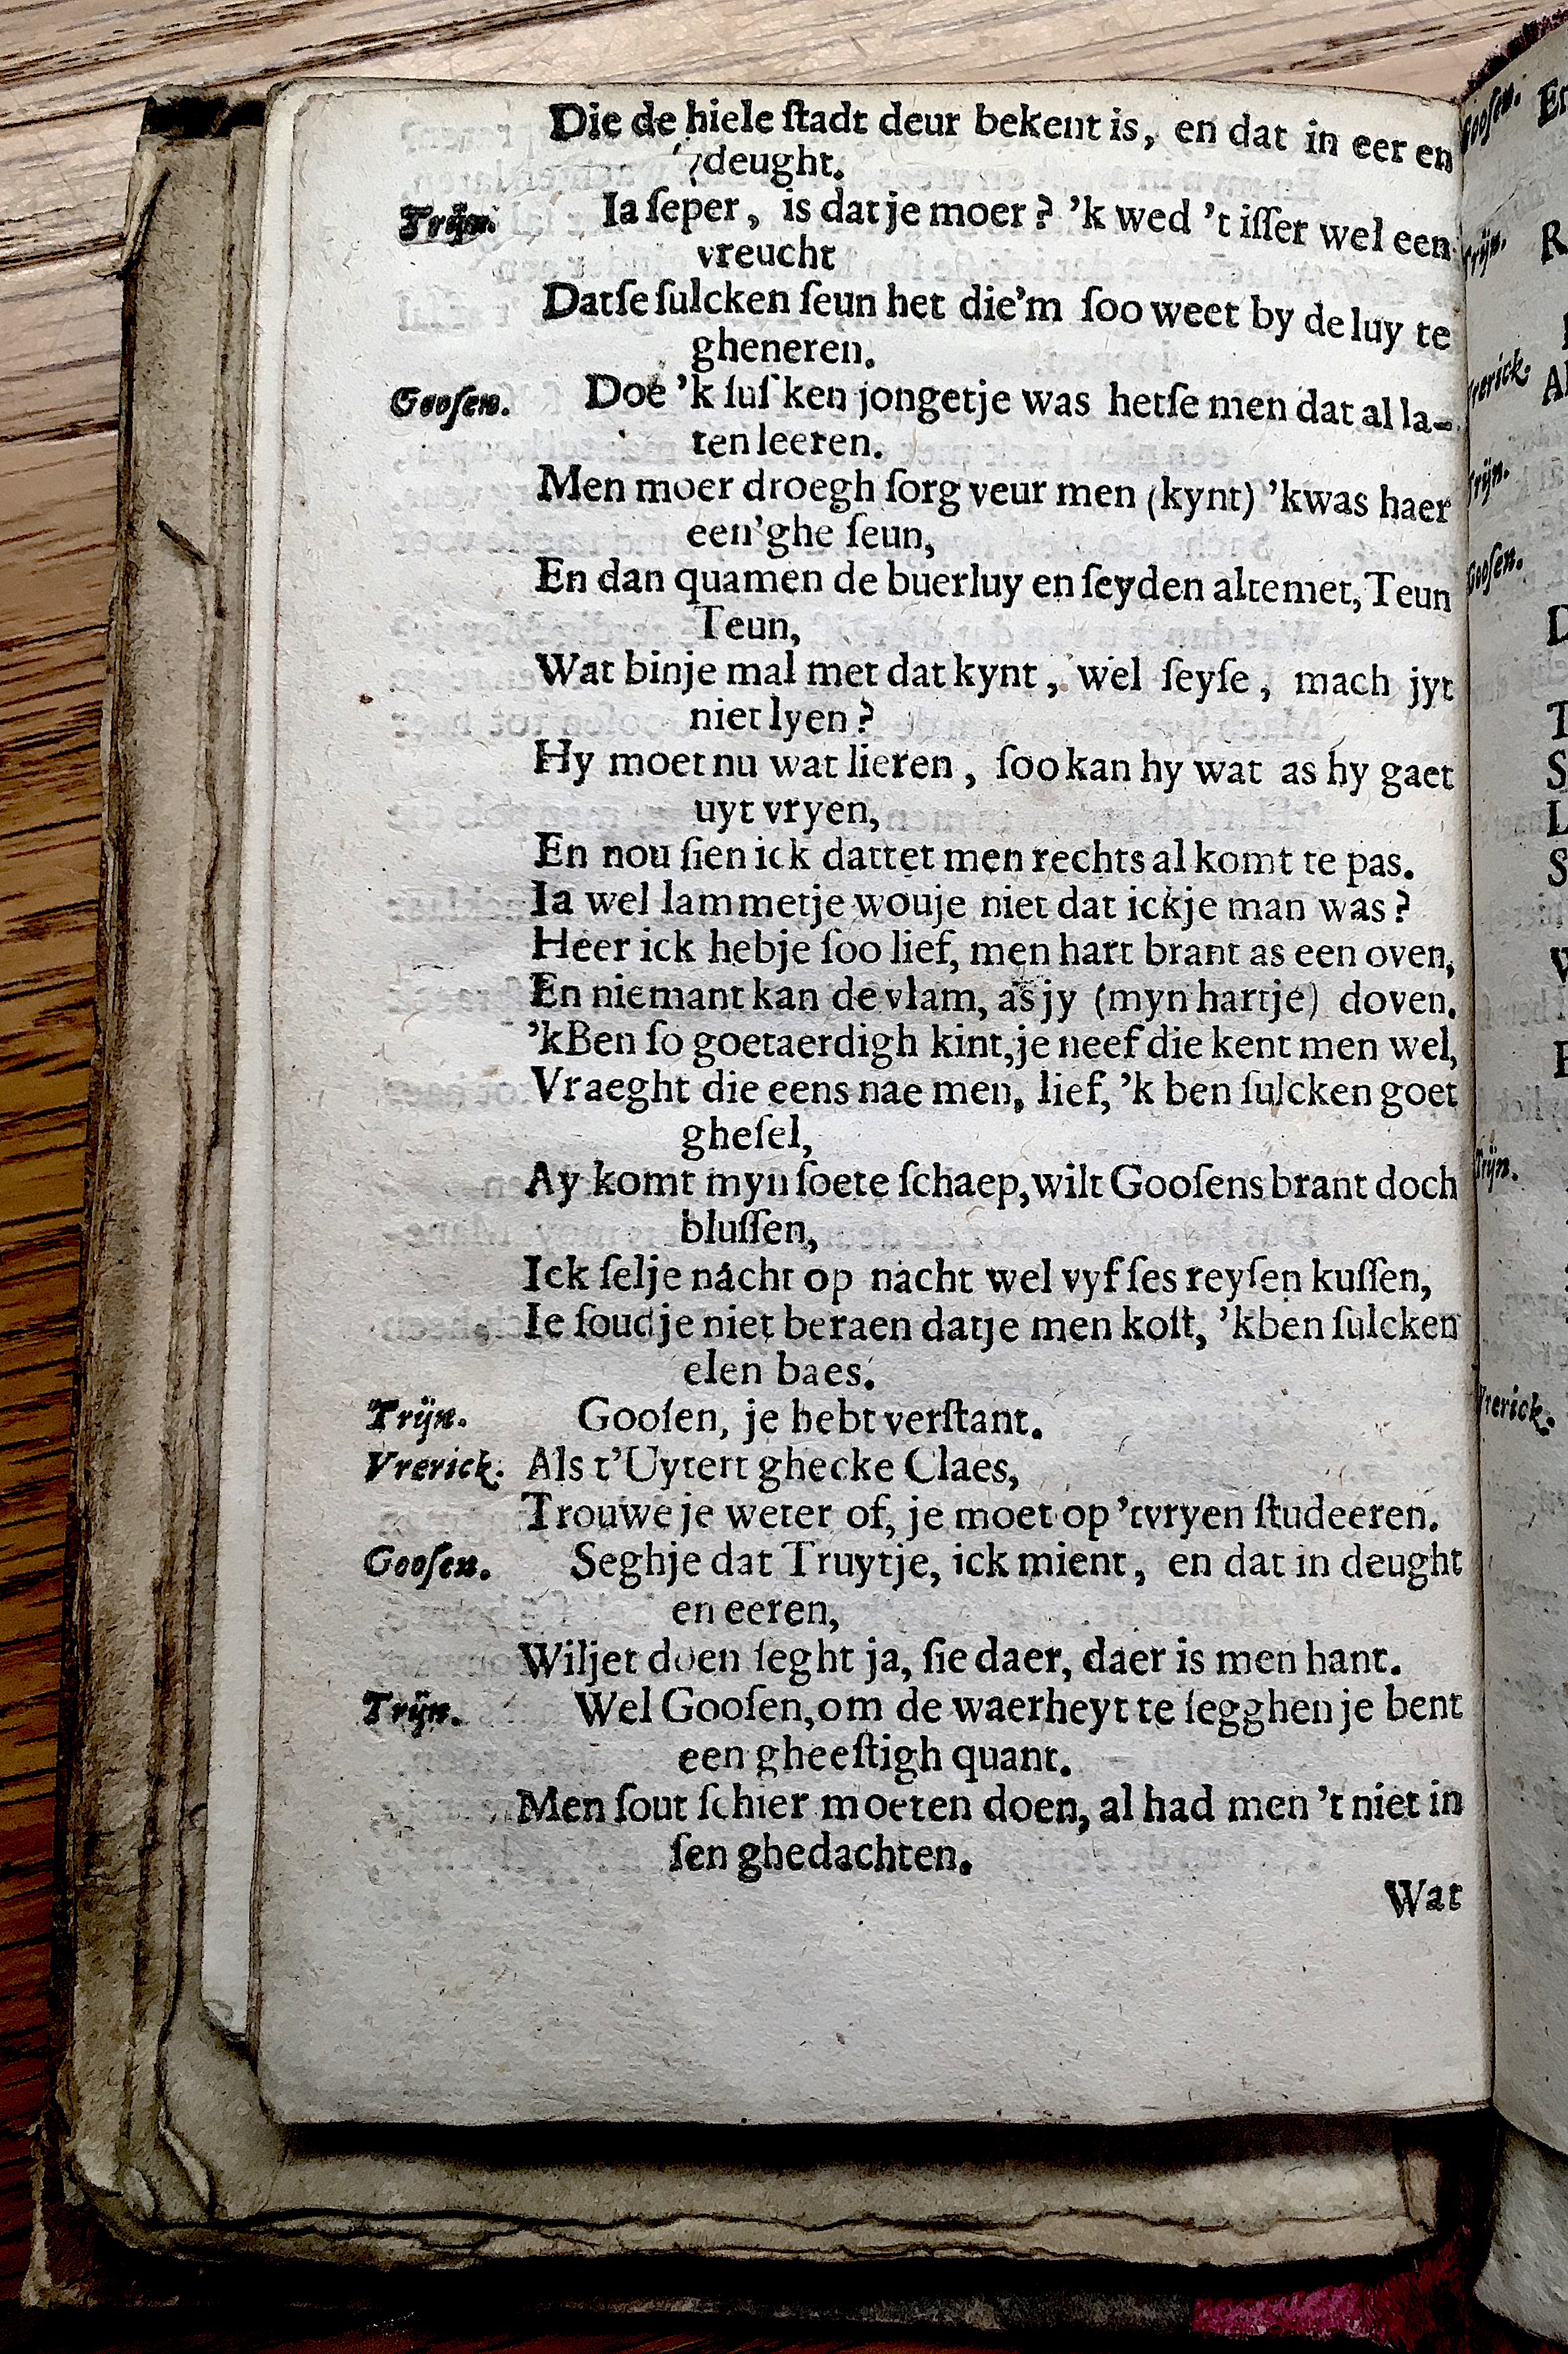 Die de hiele ſtadt deur bekent is, en dat in eer en
deught.
Trijn. Ia ſeper, is dat je moer? 'k wed 't iſſer wel een
vreucht
Datſe ſulcken ſeun het die'm ſoo weet by de luy te
gheneren.
Gooſen. Doe 'k ſuſ ken jongetje was hetſe men dat al la-
ten leeren.
Men moer droegh ſorg veur men (kynt) 'kwas haer
een'ghe ſeun,
En dan quamen de buerluy en ſeyden altemet, Teun
Teun,
Wat binje mal met dat kynt, wel ſeyſe, mach jyt
niet lyen?
Hy moet nu wat lieren, ſoo kan hy wat as hy gaet
uyt vryen,
En nou ſien ick dattet men rechts al komt te pas.
Ia wel lammetje wouje niet dat ickje man was?
Heer ick hebje ſoo lief, men hart brant as een oven,
En niemant kan de vlam, as jy (myn hartje) doven.
'kBen ſo goetaerdigh kint, je neef die kent men wel,
Vraeght die eens nae men, lief, 'k ben ſulcken goet
gheſel,
Ay komt myn ſoete ſchaep, wilt Gooſens brant doch
bluſſen,
Ick ſelje nacht op nacht wel vyf ſes reyſen kuſſen,
Ie ſoudje niet beraen datje men koſt, 'kben ſulcken
elen baes.
Trijn. Gooſen, je hebt verſtant.
Vrerick. Als t'Uytert ghecke Claes,
Trouwe je weter of, je moet op 'tvryen ſtudeeren.
Gooſen. Seghje dat Truytje, ick mient, en dat in deught
en eeren,
Wiljet doen ſeght ja, ſie daer, daer is men hant.
Trijn. Wel Gooſen, om de waerheyt te ſegghen je bent
een gheeſtigh quant.
Men ſout ſchier moeten doen, al had men 't niet in
ſen ghedachten.
Wat
Gooſen.
Trijn.
Vrerick.
Trijn.
Gooſen.
Trijn.
Vrerick.